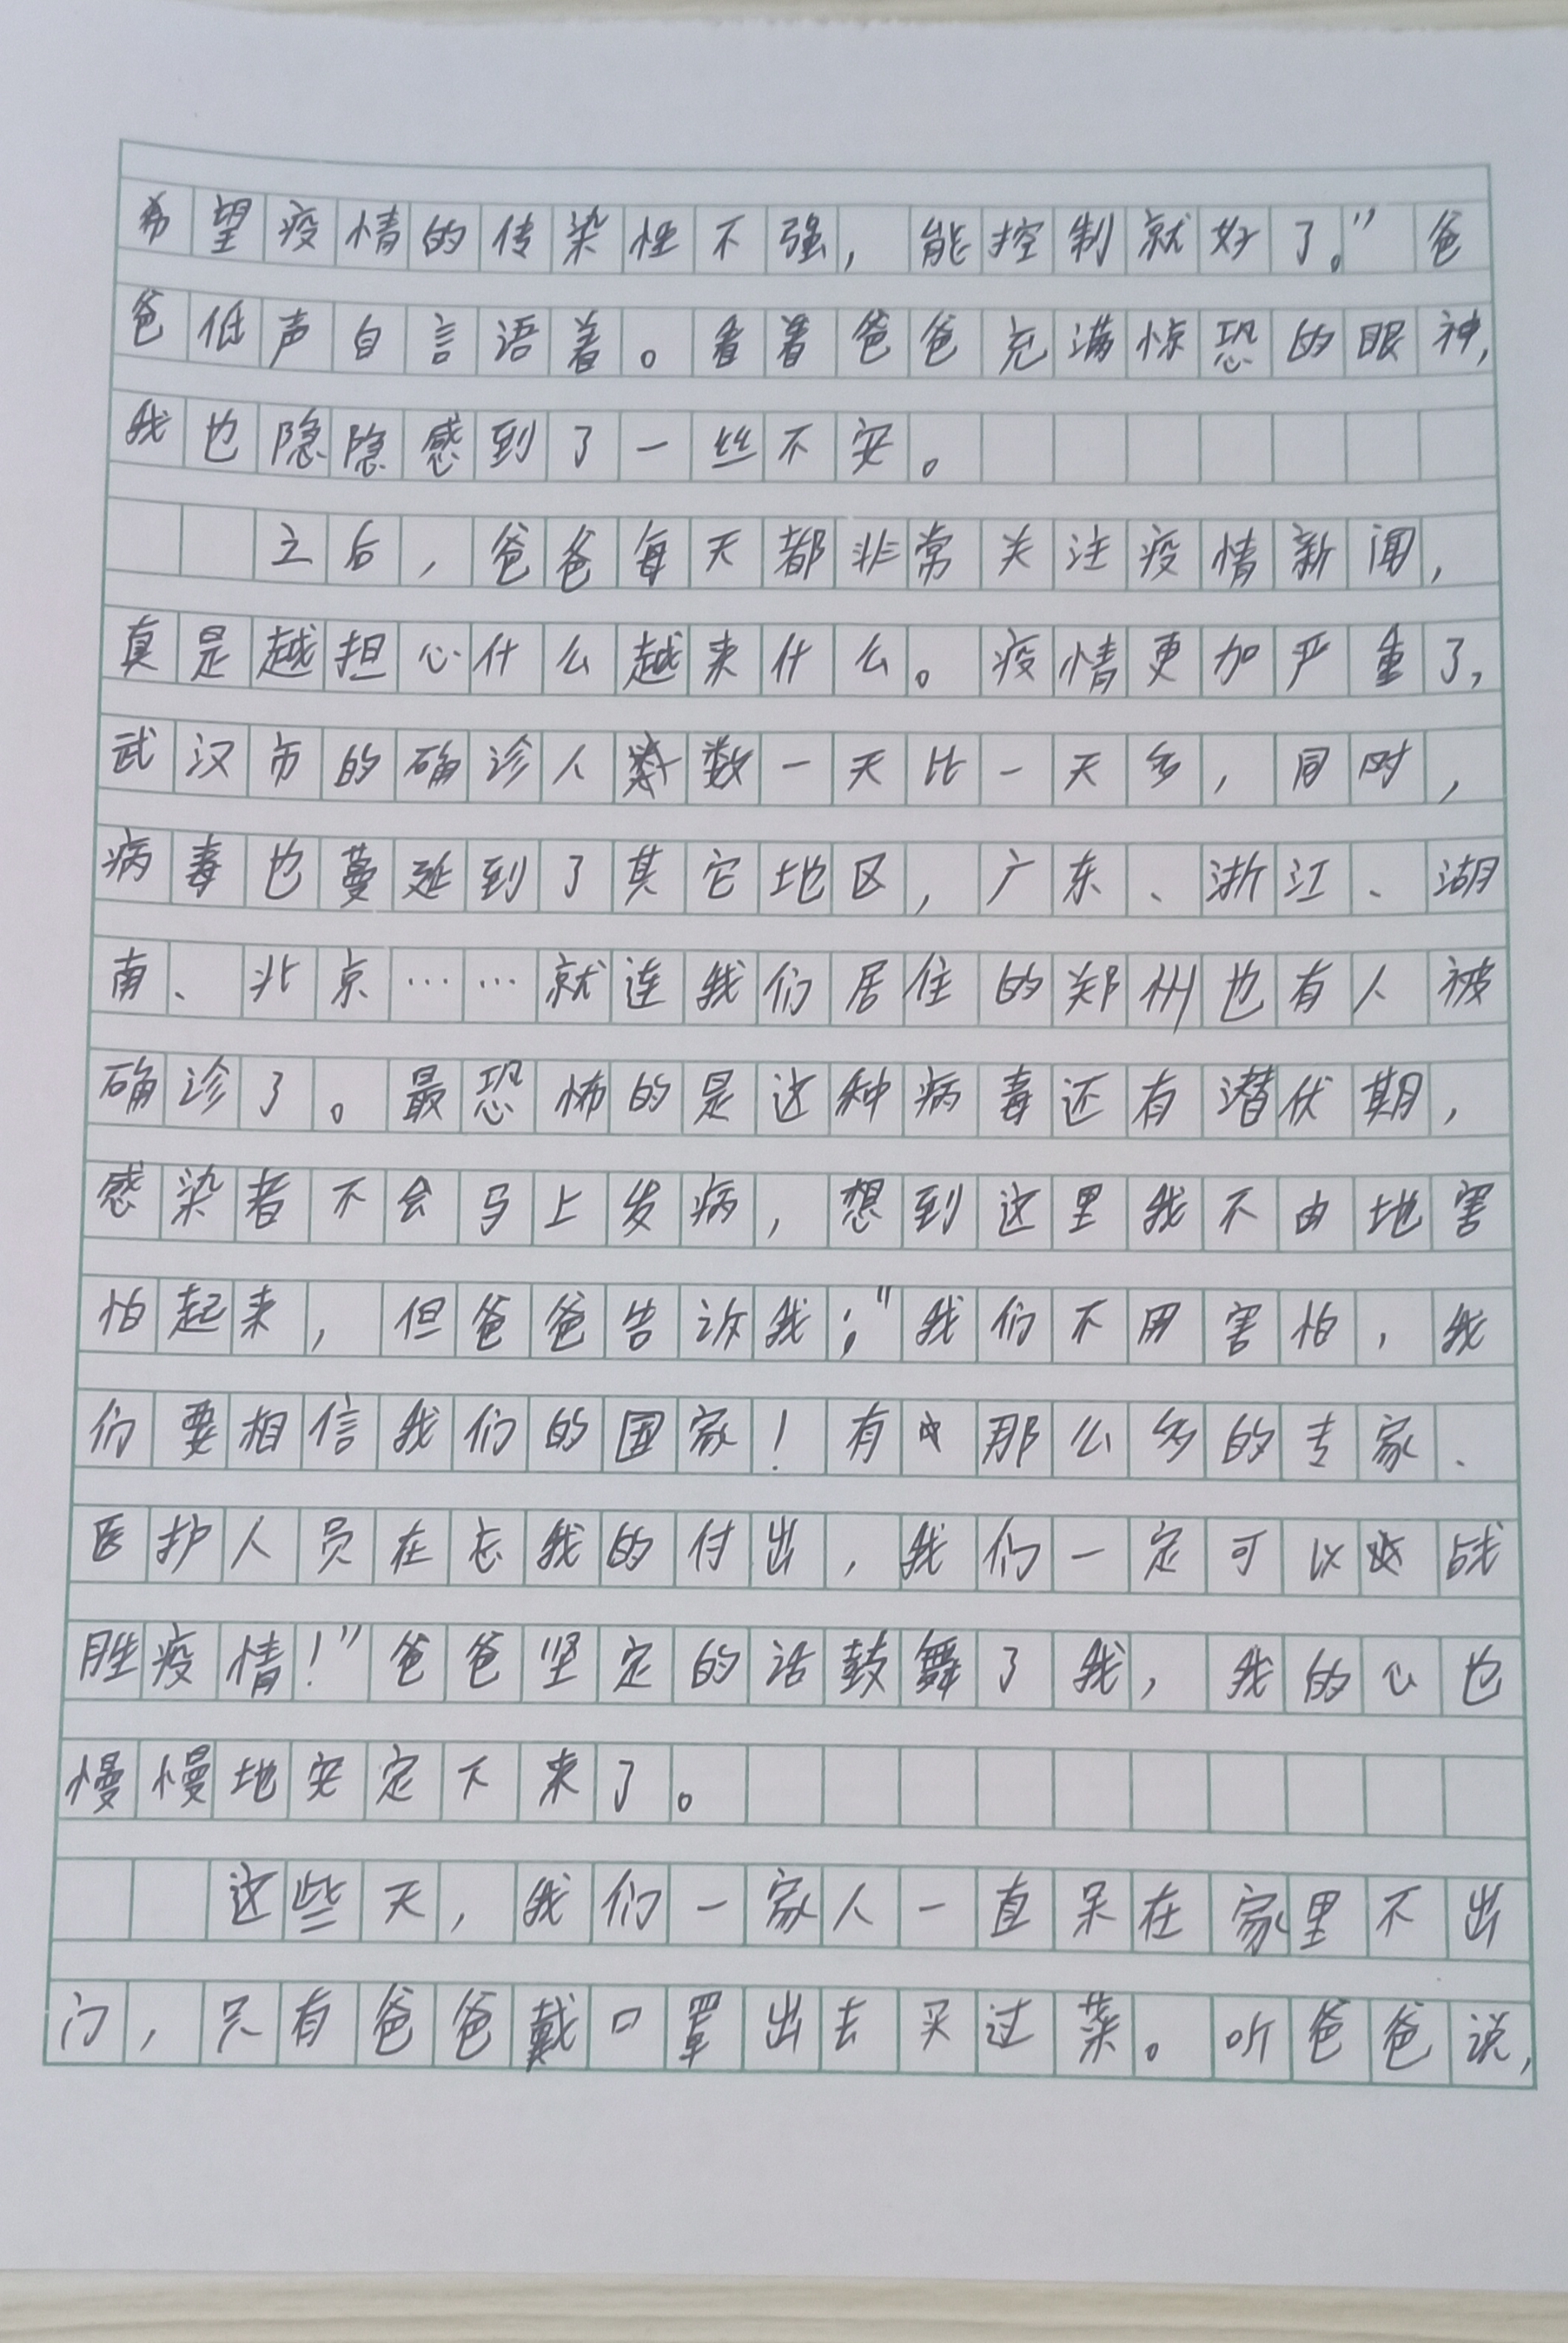 希望疫情的传染性不强，能控制就好了。”爸
爸低声自言语着。看着爸爸充满惊恐的眼神，
我也隐隐感到了一丝不安。
之后，爸爸每天都非常关注疫情新闻，
真是越担心什么越来什么。疫情更加严重了，
武汉市的确诊人数一天比一天多，同时，
病毒也蔓延到了其它地区，广东、浙江、湖
南、北京……就连我们居住的郑州也有人被
确诊了。最恐怖的是这种病毒还有潜伏期，
感染者不会马上发病，想到这里我不由地害
怕起来，但爸爸告诉我：“我们不用害怕，我
们要相信我们的国家！有那么多的专家、
医护人员在忘我的付出，我们一定可以战
胜疫情！”爸爸坚定的话鼓舞了我，我的心也
慢慢地安定下来了。
这些天，我们一家人一直呆在家里不出
门，只有爸爸戴口罩出去买过菜。听爸爸说，